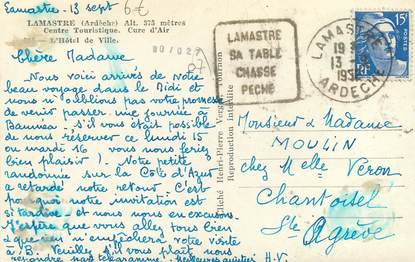 Lamastre - 13 sept 6€
LAMASTRE (Ardèche) Alt. 375 mètres
Centre Touristique. Cure d'Air
L'Hôtel de Ville.
80/027
07
Chère Madame
Nous voici arrivés de notre
beau voyage dans le Midi et
nous n'oublions pas votre promesse
de venir passer une journée à
s'il vous était possible
de nous réserver ce lundi 15
ou mardi 16 vous nous feriez
bien plaisir). Notre petite
randonnée sur la Côte d'Azur
a retardé notre retour. C'est
pourquoi notre invitation est
si tardive et nous nous en excusons.
J'espère que vous allez tous bien
et que rien n'empêchera votre visite
à B. Veuillez s'il vous plaît, nous
répondre Meilleures amitiés H.V.
Cliché Henri-Pierre Vert, Tournon
Reproduction interdite
LAMASTRE
SA TABLE
CHASSE
PECHE
LAMASTRE
13 - 9
ARDECHE
15F
Monsieur & Madame
MOULIN
chez Melle Véron
Chantoisel
Ste Agrève